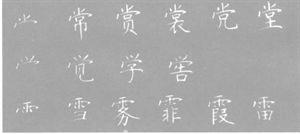 ⺌ 常 赏 裳 党 堂
𰃮 觉 学 喾
⻗ 雪 雾 霏 霞 雷